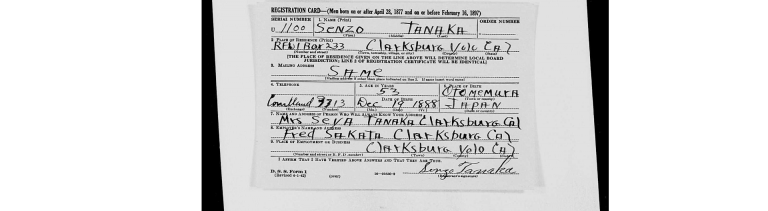 REGISTRATION CARD—(Men born on or after April 28, 1877 and on or before February 16, 1897)
SERIAL NUMBER 1. NAME (Print) ORDER NUMBER
U 1100 SENZO TANAKA
(First) (Middle) (Last)
2. PLACE OF RESIDENCE (Print)
RFD1 Box 233 Clarksburg Yolo CAl
(Number and street) (Town, township, village, or city) (County) (State)
[THE PLACE OF RESIDENCE GIVEN ON THE LINE ABOVE WILL DETERMINE LOCAL BOARD
JURISDICTION; LINE 2 OF REGISTRATION CERTIFICATE WILL BE IDENTICAL]
3. MAILING ADDRESS
SAME
[Mailing address if other than place indicated on line 2. If same insert word same]
4. TELEPHONE 5. AGE IN YEARS 6. PLACE OF BIRTH
53 OTONEMURA
DATE OF BIRTH (Town or county)
Courtland 3713 Dec 19 1888 JAPAN
(Exchange) (Number) (Mo.) (Day) (Yr.) (State or country)
7. NAME AND ADDRESS OF PERSON WHO WILL ALWAYS KNOW YOUR ADDRESS
Mrs SEVA TANAKA Clarksburg Cal
8. EMPLOYER'S NAME AND ADDRESS
Fred SAKATA Clarksburg CAl
9. PLACE OF EMPLOYMENT OR BUSINESS
Clarksburg Yolo CAl
(Number and street or R. F. D. number) (Town) (County) (State)
I AFFIRM THAT I HAVE VERIFIED ABOVE ANSWERS AND THAT THEY ARE TRUE.
D. S. S. Form 1 Senzo Tanaka
(Revised 4-1-42) (over) (Registrant's signature)